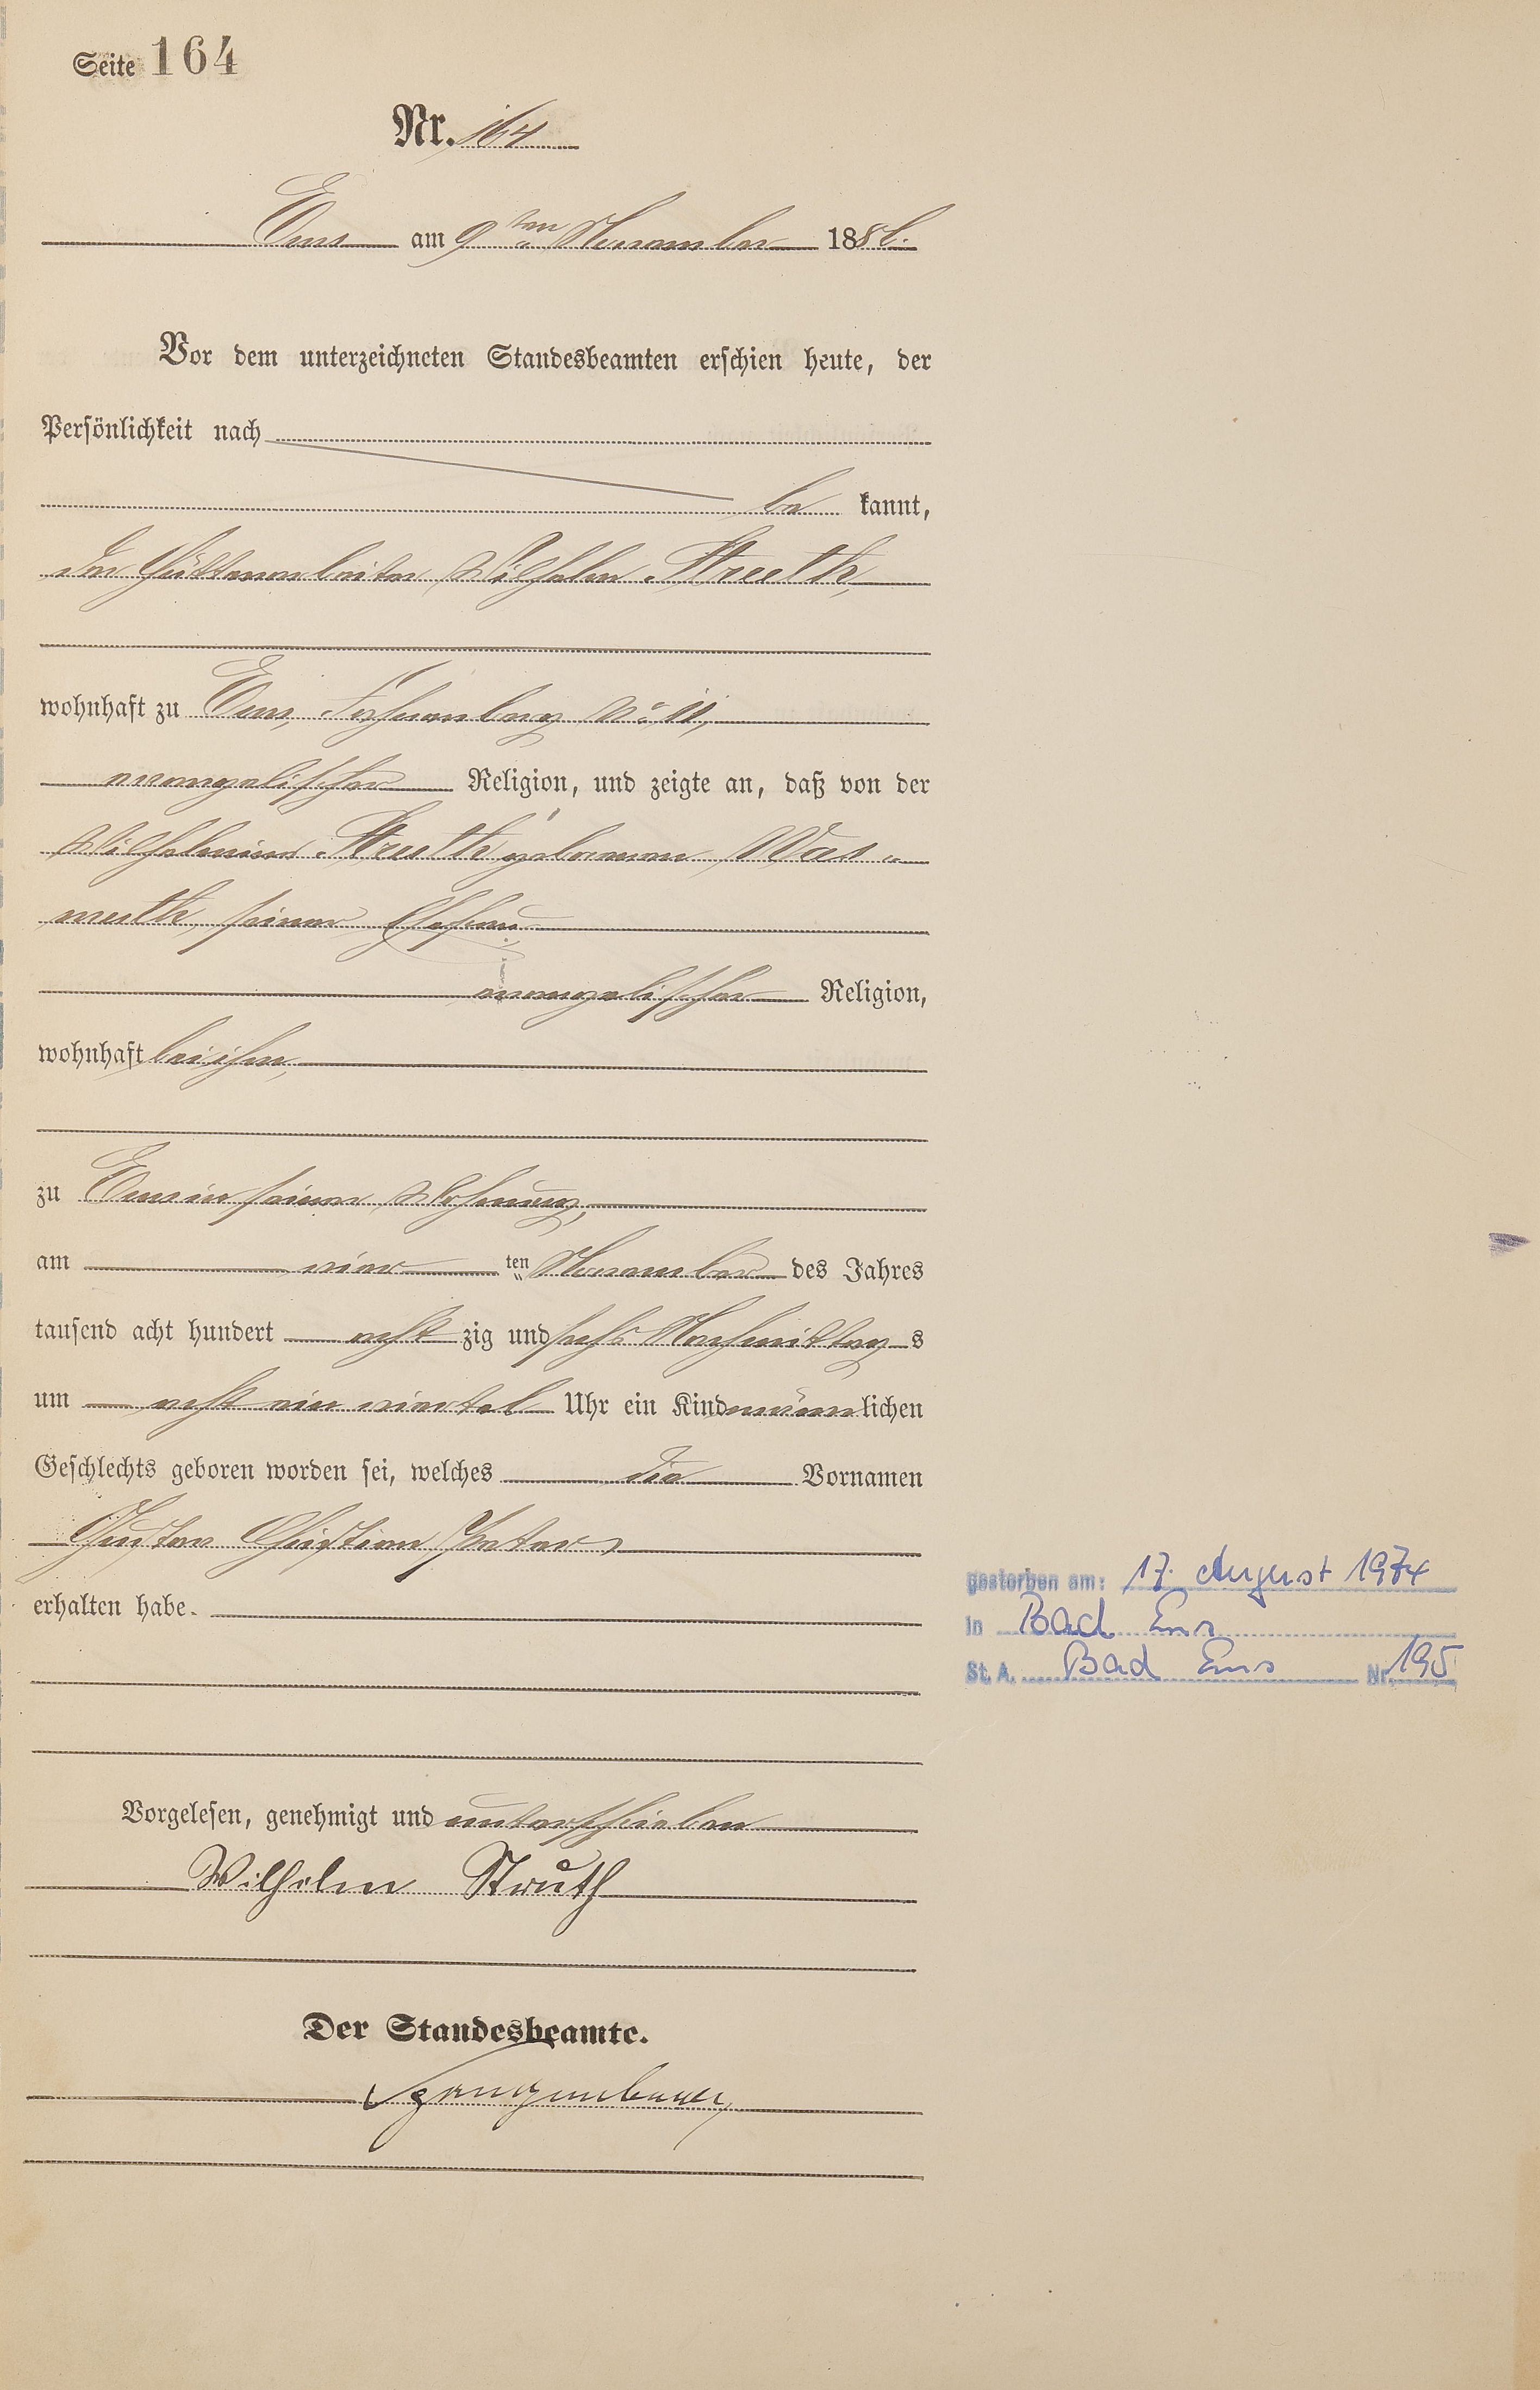 Seite 164
Nr. 164
Ems am 9ten November 1886.
Vor dem unterzeichneten Standesbeamten erschien heute, der
Persönlichkeit nach
be kannt,
der Hüttenarbeiter Wilhelm Struth,
wohnhaft zu Ems, No 11,
evangelischer Religion, und zeigte an, daß von der
Wilhelmine Struth geborenen Was-
muth, seiner Ehefrau
evangelischer Religion,
wohnhaft bei ihm,
zu Ems in seiner Wohnung,
am vier ten November des Jahres
tausend acht hundert acht zig und sechs Nachmittag s
um acht ein viertel Uhr ein Kind männlichen
Geschlechts geboren worden sei, welches die Vornamen
Gustav Christian Peter
erhalten habe.
gestorben am: 17. August 1974
in Bad Ems
St. A. Bad Ems Nr. 195
Vorgelesen, genehmigt und unterschrieben
Wilhelm Struth
Der Standesbeamte.